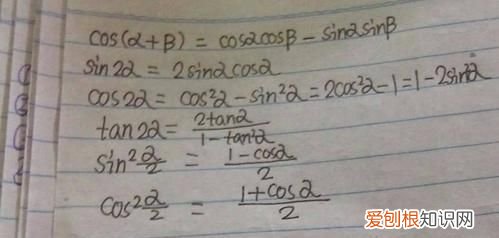 cos(α+β) = cosαcosβ - sinαsinβ
sin2α = 2sinαcosα
cos2α = cos²α - sin²α = 2cos²α - 1 = 1 - 2sin²α
tan2α = 2tanα / 1 - tan²α
sin² α/2 = 1 - cosα / 2
cos² α/2 = 1 + cosα / 2
爱刨根知识网